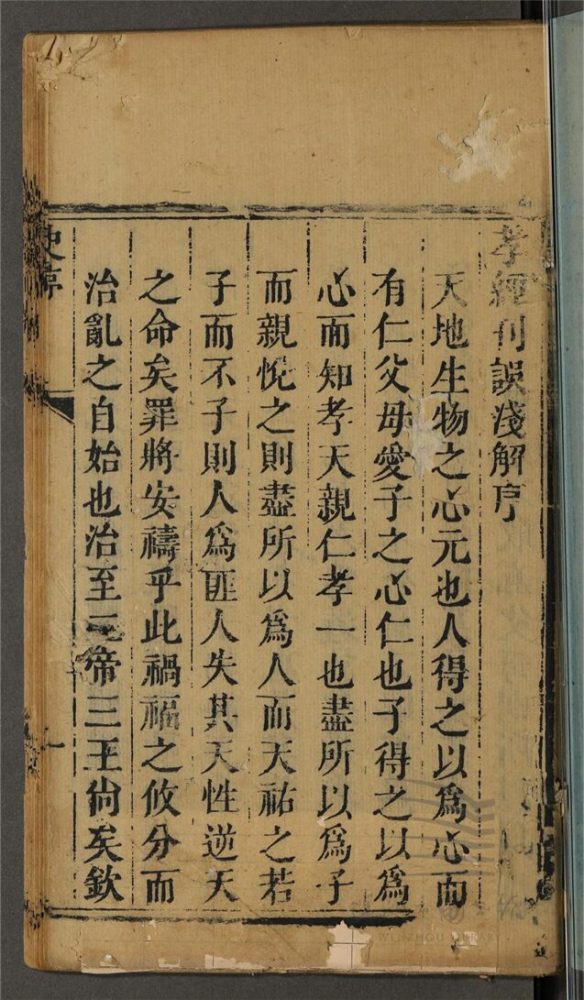 孝經刊誤淺解序
天地生物之心元也人得之以為心而
有仁父母愛子之心仁也子得之以為
心而知孝天親仁孝一也盡所以為子
而親悅之則盡所以為人而天祐之若
子而不子則人為匪人失其天性逆天
之命矣罪將安禱乎此禍福之攸分而
治亂之自始也治至二帝三王尚矣欽